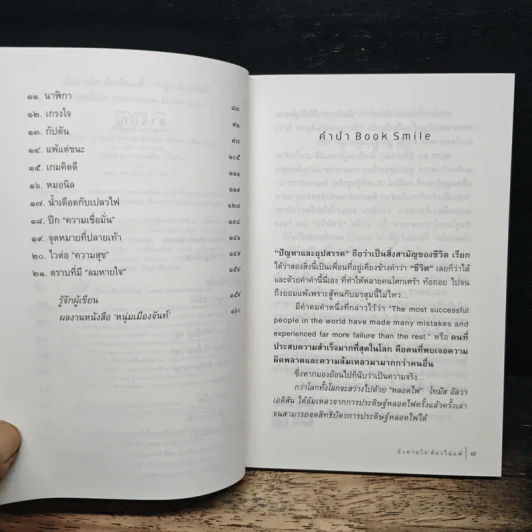 ๑๑. นาฬิกา ๘๓
๑๒. เกรงใจ ๙๑
๑๓. กัปตัน ๙๗
๑๔. แพ้แต่ชนะ ๑๐๕
๑๕. เกมคิดดี ๑๑๑
๑๖. หมอนิล ๑๑๙
๑๗. น้ำเดือดกับเปลวไฟ ๑๒๘
๑๘. ปีก "ความเชื่อมั่น" ๑๓๔
๑๙. จุดหมายที่ปลายเท้า ๑๔๑
๒๐. ไวต่อ "ความสุข" ๑๔๙
๒๑. ตราบที่มี "ลมหายใจ" ๑๕๔
รู้จักผู้เขียน ๑๕๙
ผลงานหนังสือ 'หนุ่มเมืองจันท์' ๑๖๐
คำนำ Book Smile
"ปัญหาและอุปสรรค" ถือว่าเป็นสิ่งสามัญของชีวิต เรียก
ได้ว่าสองสิ่งนี้เป็นเพื่อนที่อยู่เคียงข้างคำว่า "ชีวิต" เลยก็ว่าได้
และด้วยคำคำนี้นี่เอง ที่ทำให้หลายคนโศกเศร้า ท้อถอย ไปจน
ถึงยอมแพ้เพราะสู้ทนกับมรสุมนี้ไม่ไหว...
มีคำคมคำหนึ่งที่กล่าวไว้ว่า "The most successful
people in the world have made many mistakes and
experienced far more failure than the rest." หรือ คนที่
ประสบความสำเร็จมากที่สุดในโลก คือคนที่พบเจอความ
ผิดพลาดและความล้มเหลวมามากกว่าคนอื่น
ซึ่งหากมองย้อนไปก็นับว่าเป็นความจริง...
กว่าโลกทั้งโลกจะสว่างไปด้วย "หลอดไฟ" โทมัส อัลวา
เอดิสัน ได้ล้มเหลวจากการประดิษฐ์หลอดไฟครั้งแล้วครั้งเล่า
จนสามารถจดสิทธิบัตรการประดิษฐ์หลอดไฟได้
ถึงหายใจ ต้องไม่แพ้ | ๗